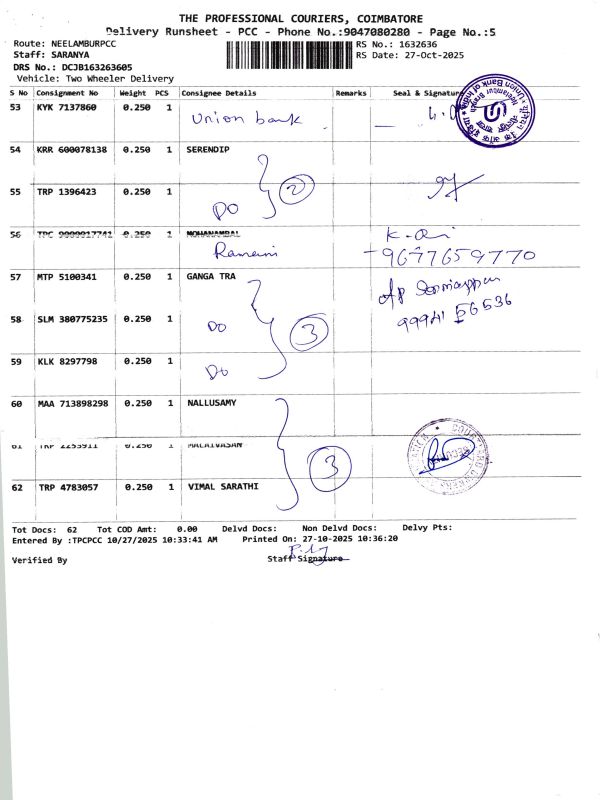 THE PROFESSIONAL COURIERS, COIMBATORE
Delivery Runsheet - PCC - Phone No.:9047080280 - Page No.:5
Route: NEELAMBURPCC RS No.: 1632636
Staff: SARANYA RS Date: 27-Oct-2025
DRS No.: DCJB163263605
Vehicle: Two Wheeler Delivery
S No Consignment No Weight PCS Consignee Details Remarks Seal & Signature
53 KYK 7137860 0.250 1 Union bank
54 KRR 600078138 0.250 1 SERENDIP
2
55 TRP 1396423 0.250 1
Do
56 TPC 9000017741 0.250 1 MOHANAMBAL
9677659770
57 MTP 5100341 0.250 1 GANGA TRA
99941 56536
58 SLM 380775235 0.250 1
Do 3
59 KLK 8297798 0.250 1
Do
60 MAA 713898298 0.250 1 NALLUSAMY
61 TRP 2293911 0.250 1 MALAIVASAN
3
62 TRP 4783057 0.250 1 VIMAL SARATHI
Tot Docs: 62 Tot COD Amt: 0.00 Delvd Docs: Non Delvd Docs: Delvy Pts:
Entered By :TPCPCC 10/27/2025 10:33:41 AM Printed On: 27-10-2025 10:36:20
Verified By Staff Signature